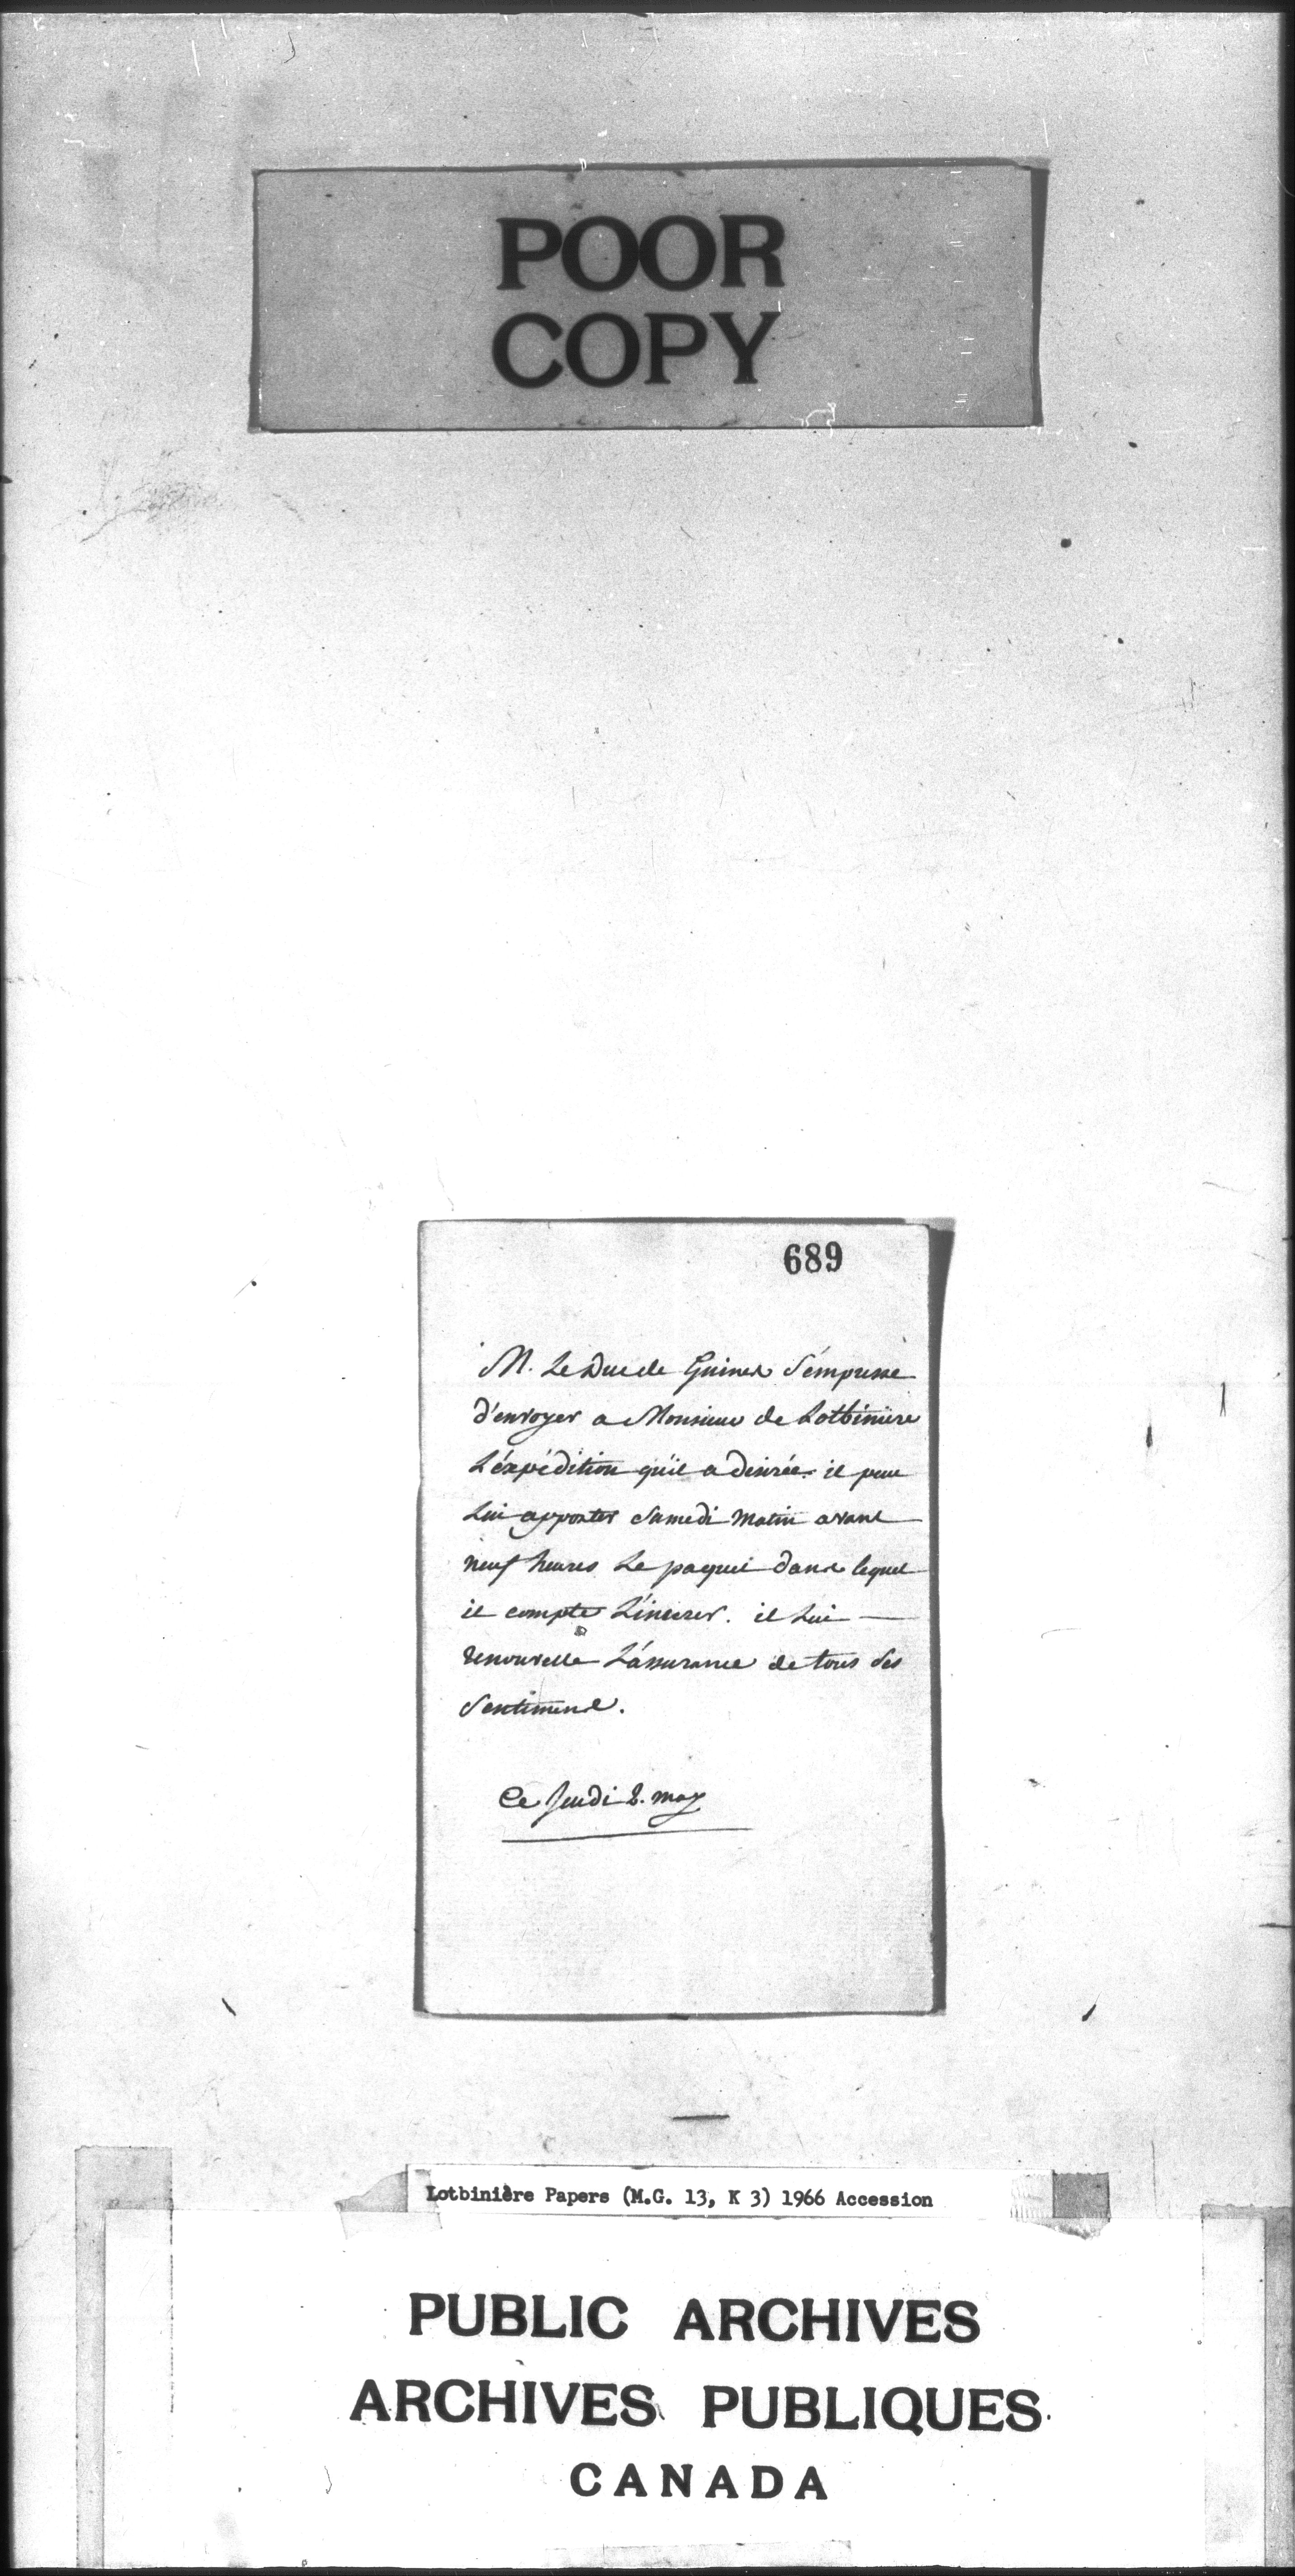 POOR
COPY
689
M. Le Duc de Guines S'empresse
d'envoyer a Monsieur de Lotbiniere
L'éxpédition qu'il a desirée. il peut
Lui apporter Samedi matin avant
neuf heures Le paquet dans lequel
il compte L'inserer. il Lui
renouvelle L'assurance de tous Ses
Sentimens.
Ce Jeudi 2. may
Lotbinière Papers (M.G. 13, K 3) 1966 Accession
PUBLIC ARCHIVES
ARCHIVES PUBLIQUES
CANADA